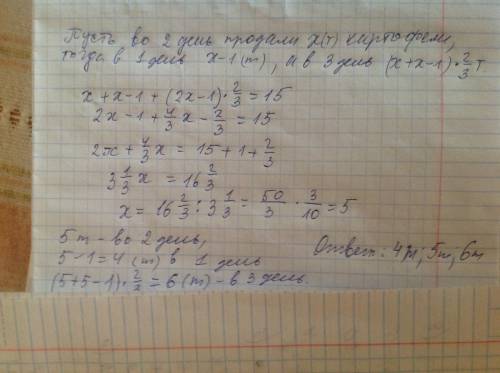 Пусть во 2 день продали x(т) картофеля,
тогда в 1 день x-1(т), а в 3 день (x+x-1)·2/3 т
x+x-1+(2x-1)·2/3=15
2x-1+4/3x-2/3=15
2x+4/3x=15+1+2/3
3 1/3x=16 2/3
x=16 2/3:3 1/3=50/3·3/10=5
5т-во 2 день,
5-1=4(т) в 1 день
(5+5-1)·2/3=6(т)-в 3 день.
Ответ: 4т; 5т; 6т